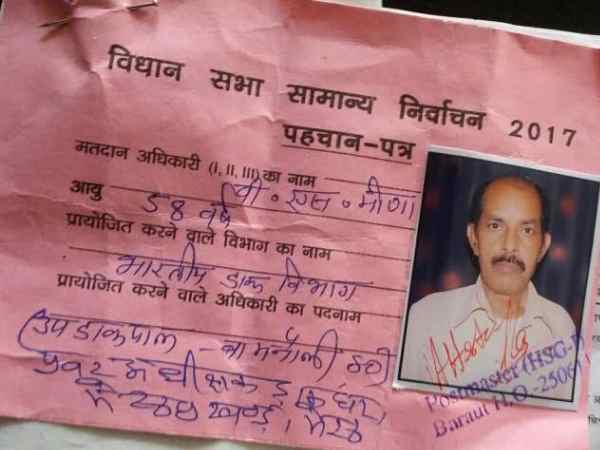 विधान सभा सामान्य निर्वाचन 2017
पहचान-पत्र
मतदान अधिकारी (I, II, III) का नाम
वी॰ एस॰ मीणा
आयु 58 वर्ष
प्रायोजित करने वाले विभाग का नाम
भारतीय डाक विभाग
प्रायोजित करने वाले अधिकारी का पदनाम
उपडाकपाल - बामनौली
प्रवर अधीक्षक
मेरठ
Postmaster (HSG-I)
Baraut H.O.-250611